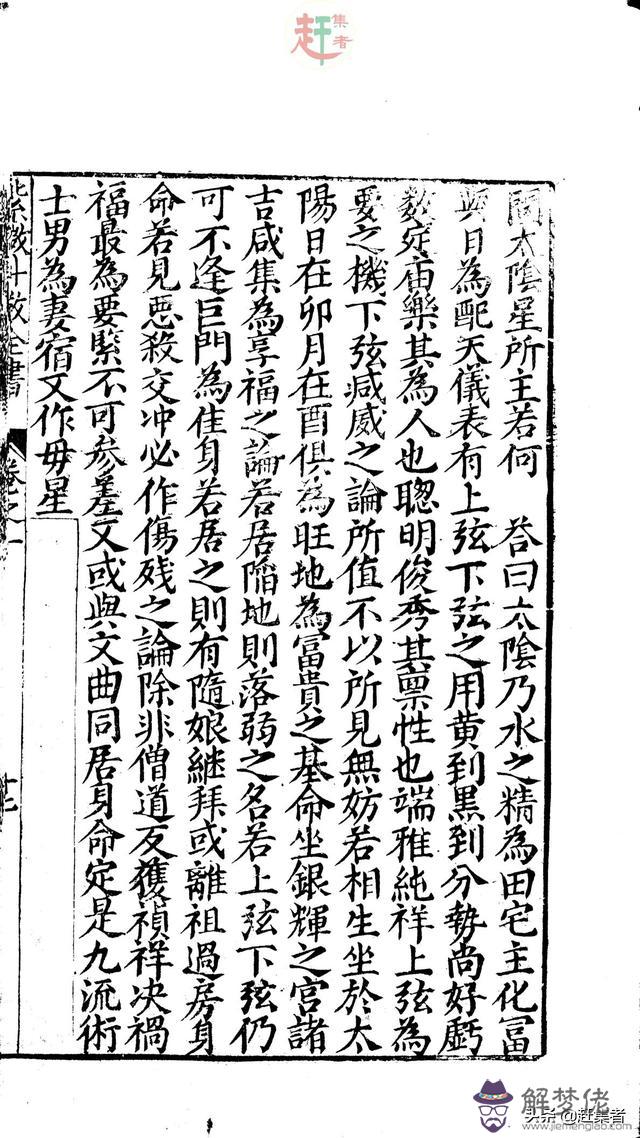 赶集者
問太陰星所主若何　荅曰太陰乃水之精為田宅主化冨
與日為配天儀表有上弦下弦之用黃到黑到分勢尚好虧
數定庙樂其為人也聰明俊秀其禀性也端雅純祥上弦為
要之機下弦减威之論所值不以所見無妨若相生坐於太
陽日在卯月在酉俱為旺地為冨貴之基命坐銀輝之宮諸
吉咸集為享福之論若居陥地則落弱之名若上弦下弦仍
可不逢巨門為佳身若居之則有隨娘継拜或離祖過房身
命若見悪殺交冲必作傷残之論除非僧道反獲禎祥决禍
福最為要緊不可叅差又或與文曲同居身命定是九流術
士男為妻宿又作毋星
微斗数全書
卷之一
十七
解梦佬
头条@赶集者
www.jiemenglao.com